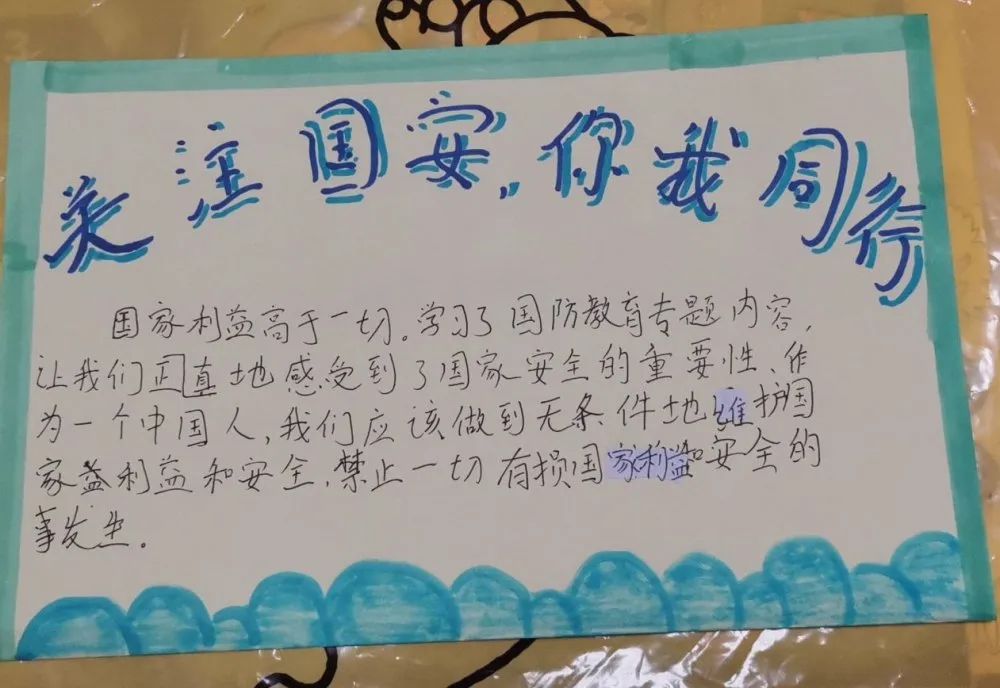 关注国安,你我同行
国家利益高于一切。学习了国防教育专题内容,
让我们正直地感受到了国家安全的重要性、作
为一个中国人,我们应该做到无条件地维护国
家益利益和安全、禁止一切有损国家利益和安全的
事发生.